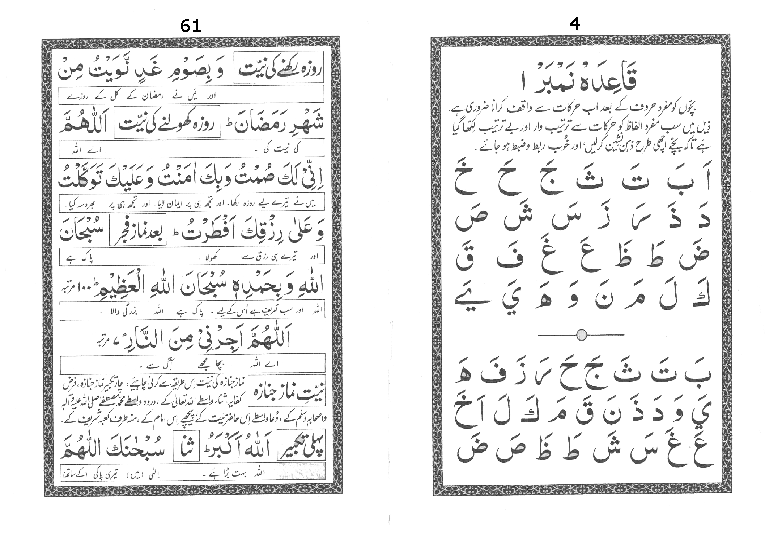 61
روزہ رکھنے کی نیّت وَ بِصَوْمِ غَدٍ نَّوَیْتُ مِنْ
اور میں نے رمضان کے کل کے روزے
شَهْرِ رَمَضَانَ ۔ روزہ کھولنے کی نیّت اَللّٰهُمَّ
کی نیت کی ۔ اے اللہ
اِنِّیْ لَكَ صُمْتُ وَبِكَ اٰمَنْتُ وَعَلَیْكَ تَوَكَّلْتُ
میں نے تیرے لیے روزہ رکھا، اور تجھ ہی پر ایمان لایا اور تجھ ہی پر بھروسہ کیا۔
وَ عَلٰی رِزْقِكَ اَفْطَرْتُ ۔ بعد نماز فجر سُبْحَانَ
اور تیرے ہی رزق سے کھولا ۔ پاک ہے
اللّٰهِ وَ بِحَمْدِهٖ سُبْحَانَ اللّٰهِ الْعَظِیْمِ ۱۰۰ مرتبہ
اللہ اور سب تعریف ہے اس کے لیے ۔ پاک ہے اللہ بزرگی والا ۔
اَللّٰهُمَّ اَجِرْنِیْ مِنَ النَّارِ ۷ مرتبہ
اے اللہ بچا مجھے آگ سے ۔
نیّت نماز جنازہ نماز جنازہ کی نیّت اس طریقہ سے کرنی چاہیے: چار تکبیر نماز جنازہ، فرض
کفایہ، ثنا واسطے اللہ تعالیٰ کے، درود واسطے محمد مصطفےٰ صلی اللہ علیہ وآلہ
واصحابہ وسلم کے، دُعا واسطے اس حاضر میّت کے، پیچھے اس امام کے، منہ طرف کعبہ شریف کے۔
پہلی تکبیر اَللّٰهُ اَكْبَرُ ۔ ثنا سُبْحٰنَكَ اللّٰهُمَّ
اللہ بہت بڑا ہے ۔
4
قَاعِدَہ نَمبَر ۱
بچّوں کو مفرد حروف کے بعد اب حرکات سے واقف کرانا ضروری ہے،
ذیل میں سب مفرد الفاظ کو حرکات سے ترتیب وار اور بے ترتیب لکھا گیا
ہے تاکہ بچّے اچھی طرح ذہن نشین کرلیں، اور خُوب ربط و ضبط ہو جائے۔
اَ بَ تَ ثَ جَ حَ خَ
دَ ذَ رَ زَ سَ شَ صَ
ضَ طَ ظَ عَ غَ فَ قَ
كَ لَ مَ نَ وَ هَ يَ یَے
بَ تَ ثَ جَ حَ رَ زَ فَ هَ
یَ وَ دَ ذَ نَ قَ مَ كَ لَ اَ خَ
عَ غَ سَ شَ طَ ظَ صَ ضَ